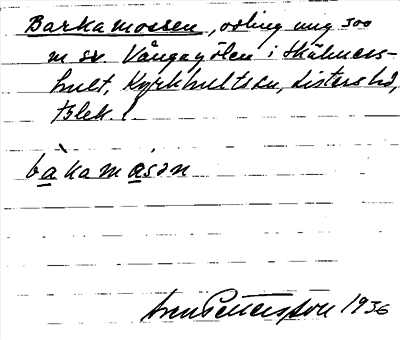 Barkamossen, odling ung 300
m sv. Vångagölen i Skälmers-
hult, Kyrkhults sn, Listers hd,
Blek.
bàkamåsən
Sven Pettersson 1936